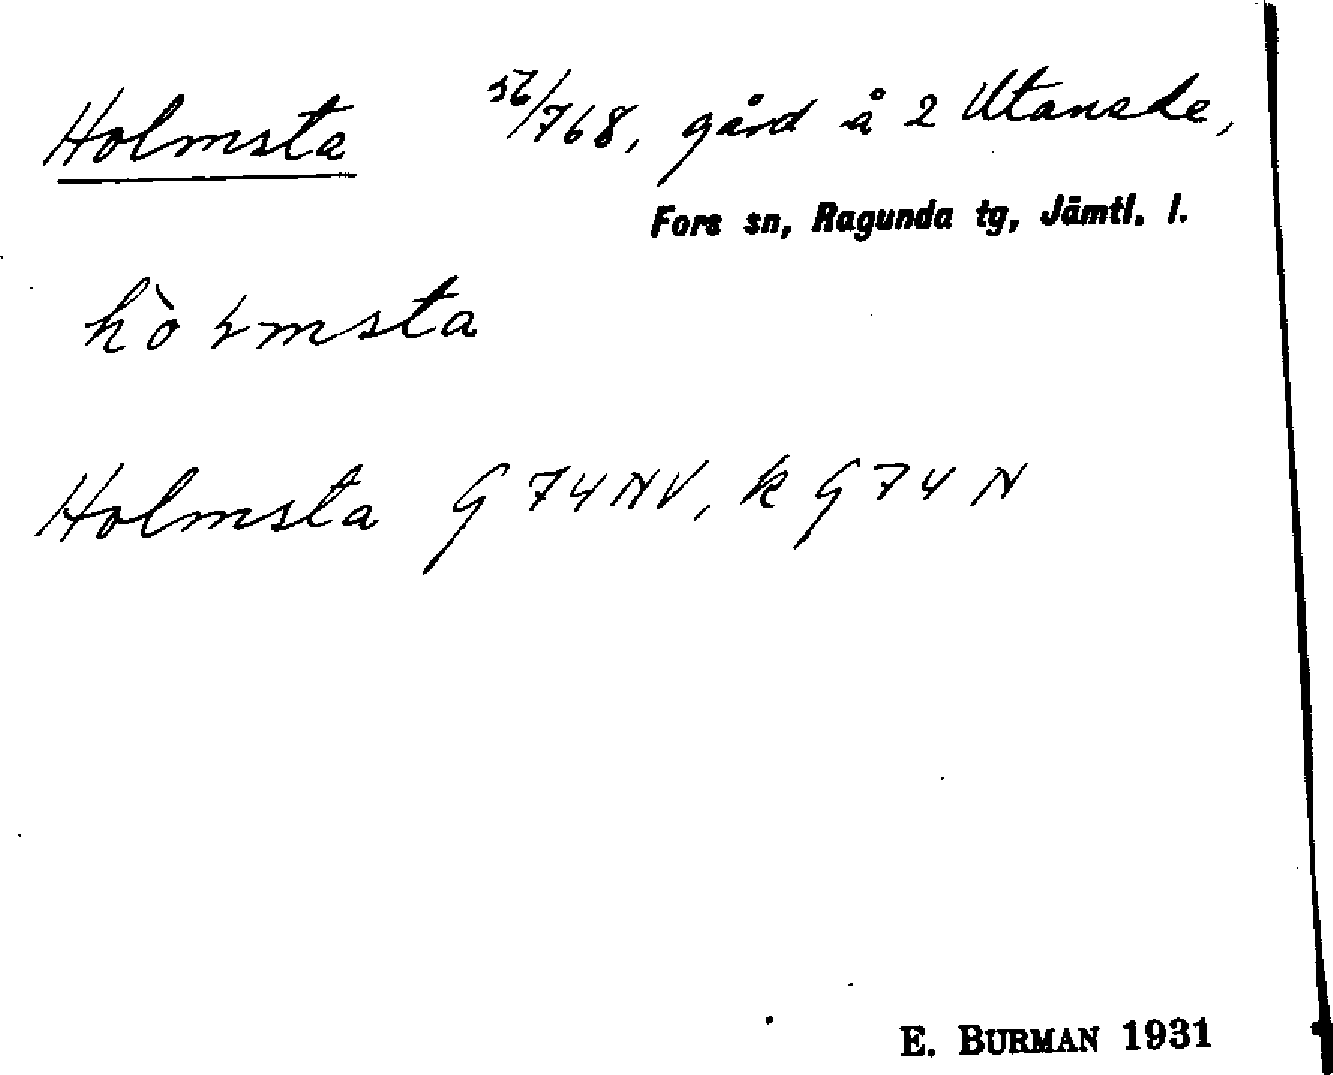 Holmsta 56/768, gård å 2 Utanede,
Fors sn, Ragunda tg, Jämtl. l.
hò ɫmsta
Holmsta G 74 NV, k G 74 N
E. BURMAN 1931